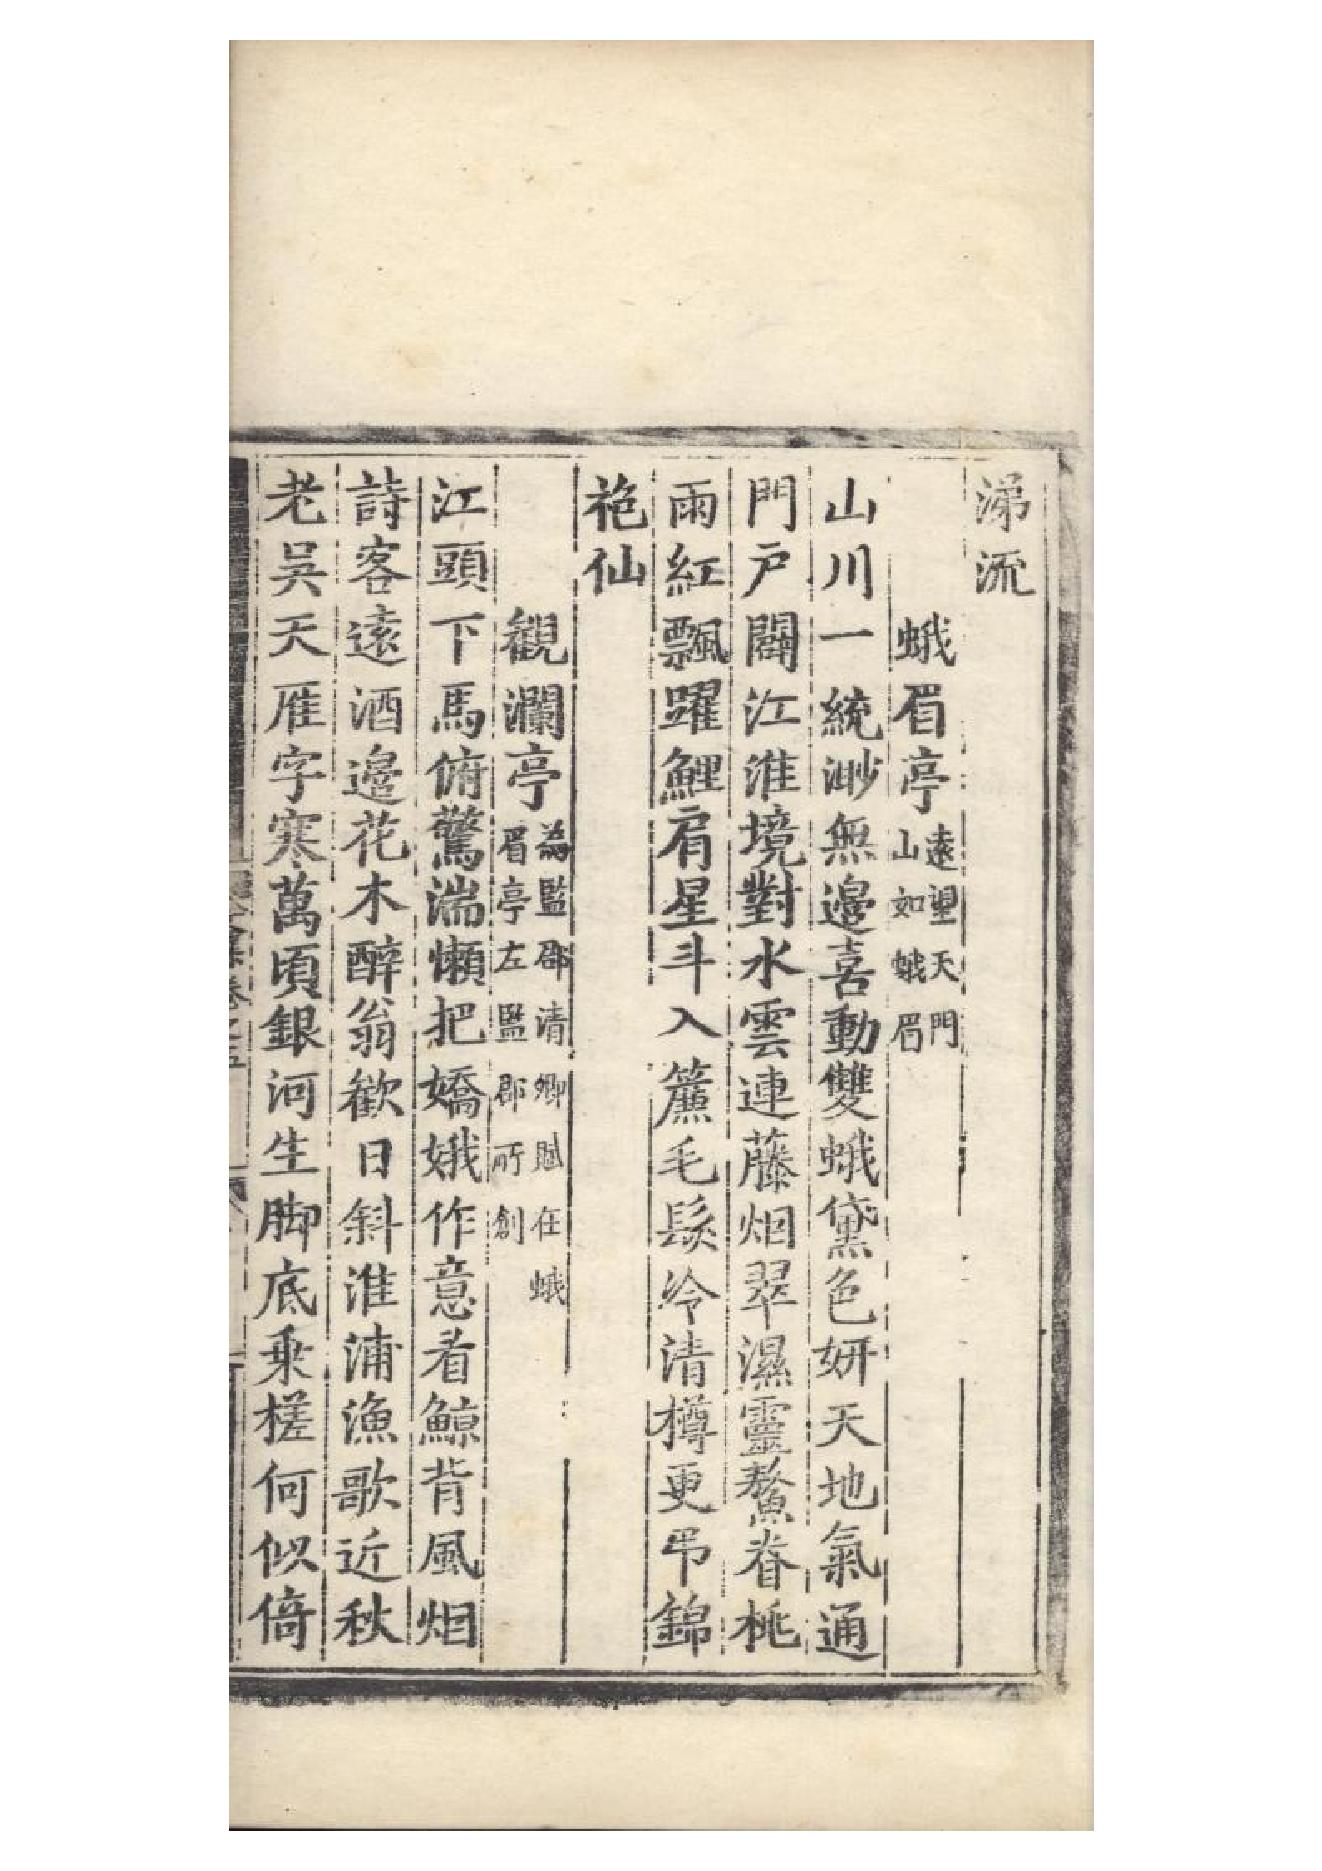 涕流
蛾眉亭遠望天門山如蛾眉
山川一統渺無邊喜動雙蛾黛色妍天地氣通
門戶闢江淮境對水雲連藤烟翠濕靈鰲脊桃
雨紅飄躍鯉肩星斗入簾毛髮冷清樽更弔錦
袍仙
觀瀾亭為監郡清卿賦在蛾眉亭左監郡所創
江頭下馬俯驚湍懶把嬌娥作意看鯨背風烟
詩客遠酒邊花木醉翁歡日斜淮浦漁歌近秋
老吳天雁字寒萬頃銀河生脚底乘槎何似倚